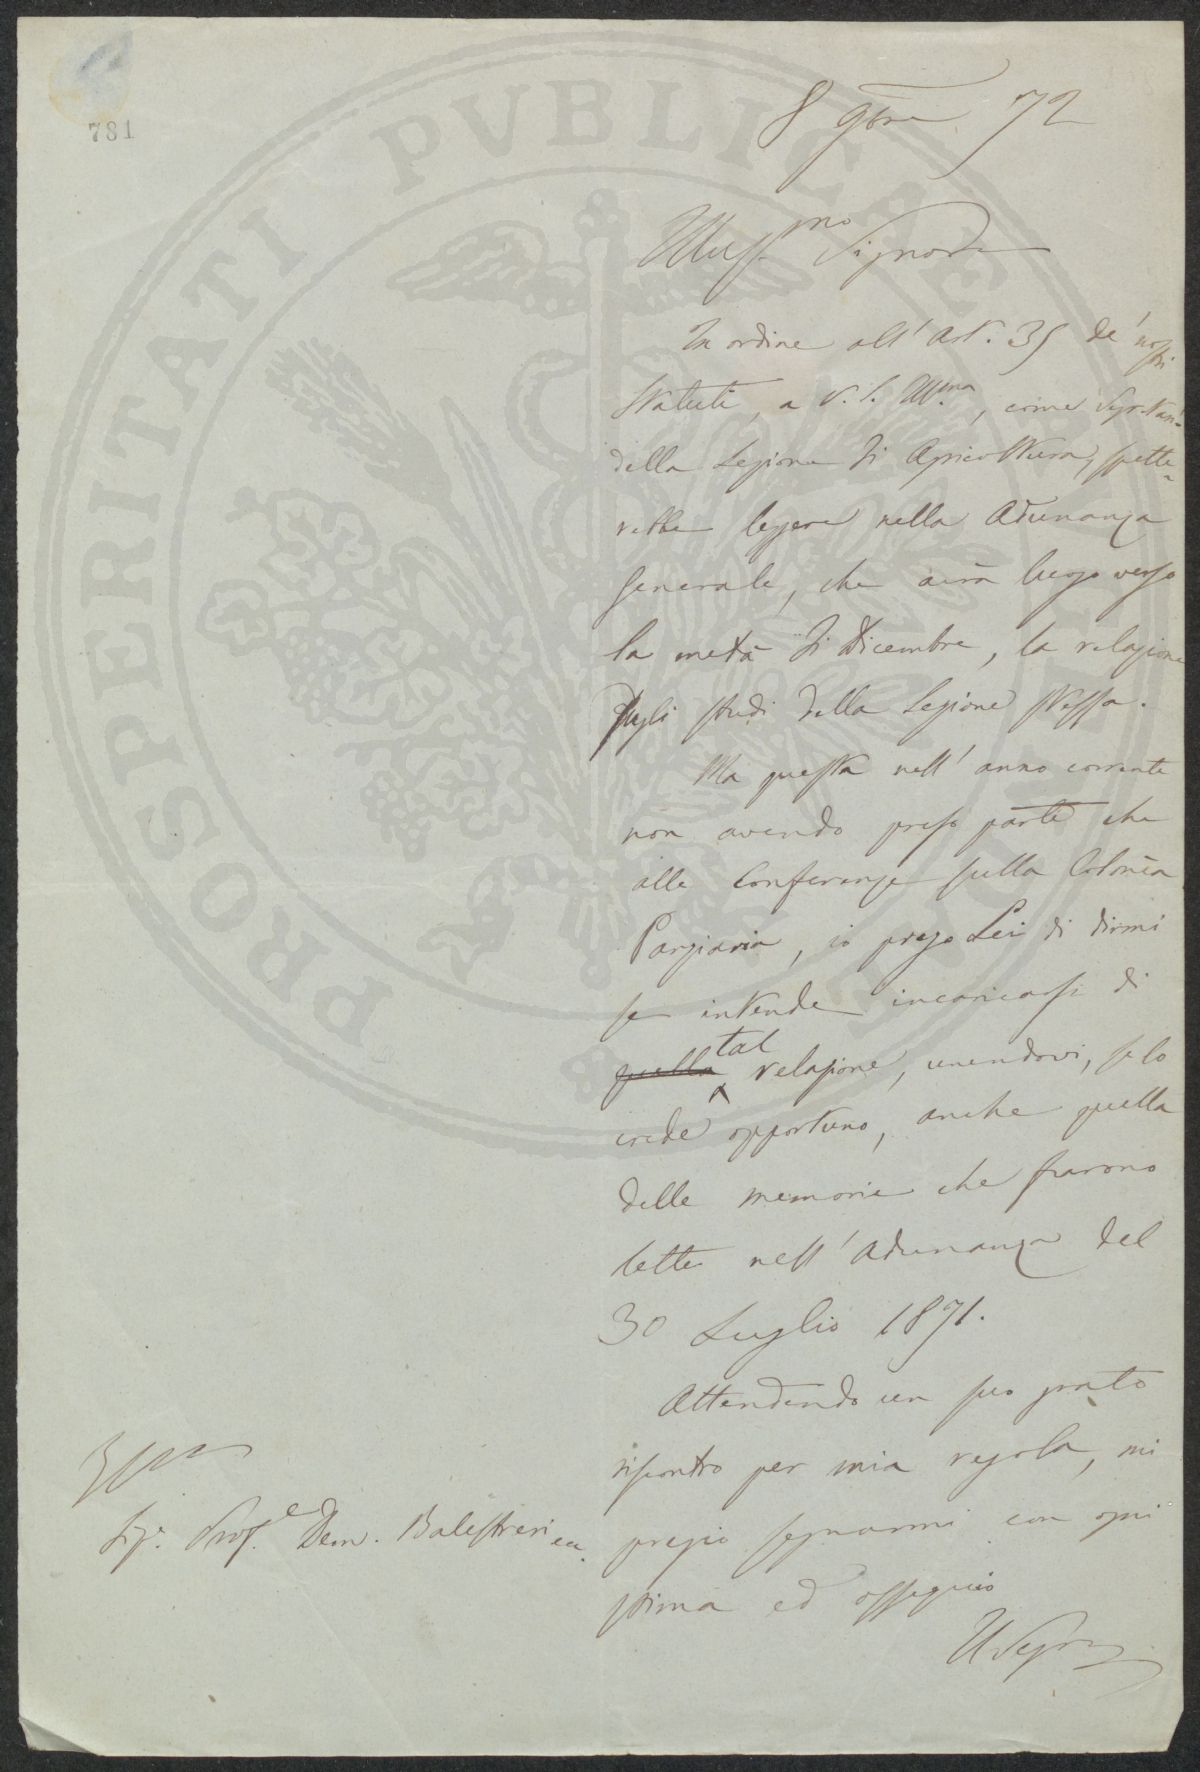 781
8 9bre 72
Illuss.mo Signore
In ordine all'Art. 35 de' nostri
Statuti, a V. S. Ill.ma, come Segretari
della Sezione di Agricoltura, spette-
rebbe leggere nella Adunanza
Generale, che avrà luogo verso
la metà di Dicembre, la relazione
sugli studi della Sezione stessa.
Ma questa nell'anno corrente
non avendo preso parte che
alle Conferenze sulla Colonìa
Parziaria, io prego Lei di dirmi
se intende incaricarsi di
quella tal relazione, unendovi, se lo
crede opportuno, anche quella
delle memorie che furono
lette nell'Adunanza del
30 Luglio 1871.
Attendendo un suo grato
riscontro per mia regola, mi
pregio segnarmi con ogni
stima ed ossequio
Il Segr
Sig. Prof.e Dem. Balestreri ecc.
PROSPERITATI PVBLICAE